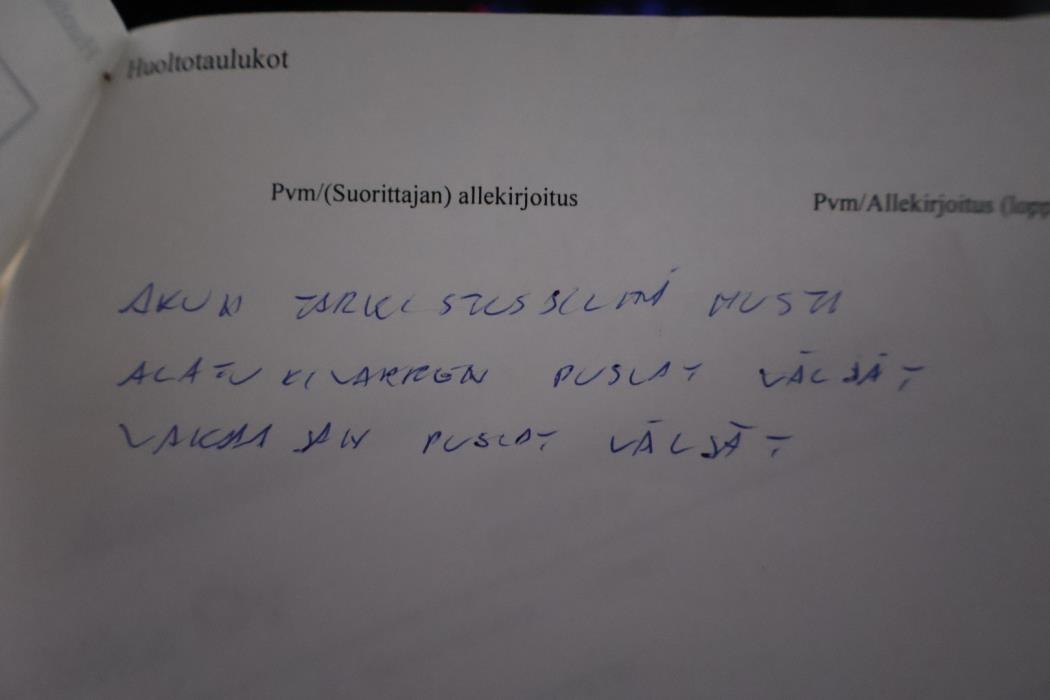 Huoltotaulukot
Pvm/(Suorittajan) allekirjoitus
Pvm/Allekirjoitus (lopp
AKUN TARKISTUSSILMÄ MUSTA
ALATUKIVARREN PUSLAT VÄLJÄT
VAKAAJAN PUSLAT VÄLJÄT